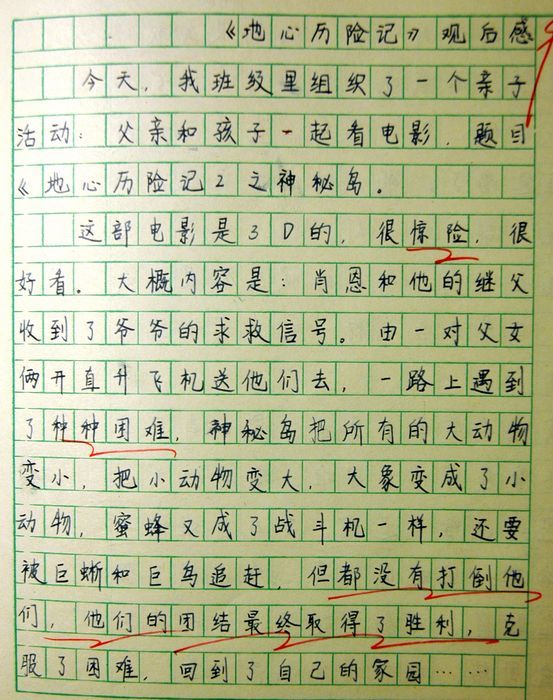 《地心历险记》观后感
今天，我班级里组织了一个亲子
活动：父亲和孩子一起看电影，题目
《地心历险记2之神秘岛。
这部电影是3D的，很惊险，很
好看。大概内容是：肖恩和他的继父
收到了爷爷的求救信号。由一对父女
俩开直升飞机送他们去，一路上遇到
了种种困难，神秘岛把所有的大动物
变小，把小动物变大，大象变成了小
动物，蜜蜂又成了战斗机一样，还要
被巨蜥和巨鸟追赶，但都没有打倒他
们，他们的团结最终取得了胜利，克
服了困难，回到了自己的家园……